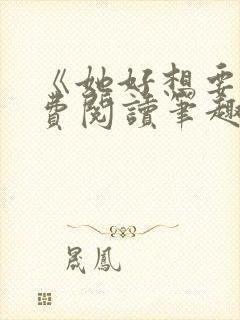 《她好想要
費閱讀筆趣
晟鳳